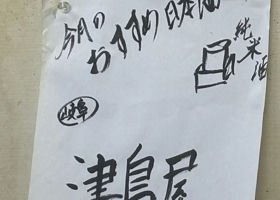 今月の
おすすめ日本酒
純米酒
岐阜
津島屋